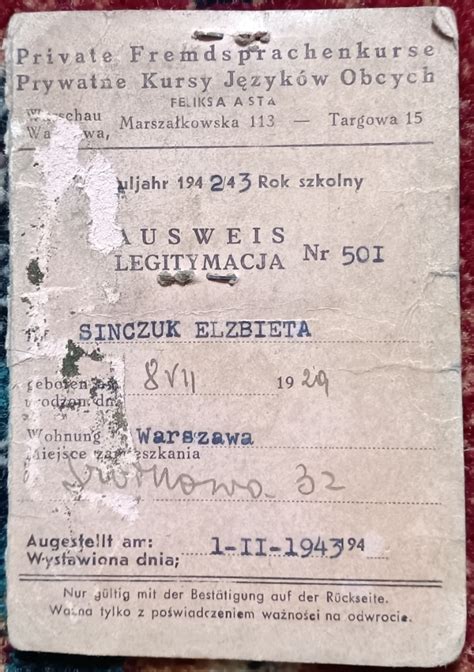 Private Fremdsprachenkurse
Prywatne Kursy Języków Obcych
FELIKSA ASTA
Warschau
Warszawa, Marszałkowska 113 — Targowa 15
uljahr 1942/43 Rok szkolny
AUSWEIS
LEGITYMACJA Nr 50I
SINCZUK ELZBIETA
geboren am 8 VII 1929
urodzon. dn.
Wohnung Warszawa
Miejsce zamieszkania
32
Augestellt am: 1-II-1943 194
Wystawiona dnia;
Nur gültig mit der Bestätigung auf der Rückseite.
Ważna tylko z poświadczeniem ważności na odwrocie.